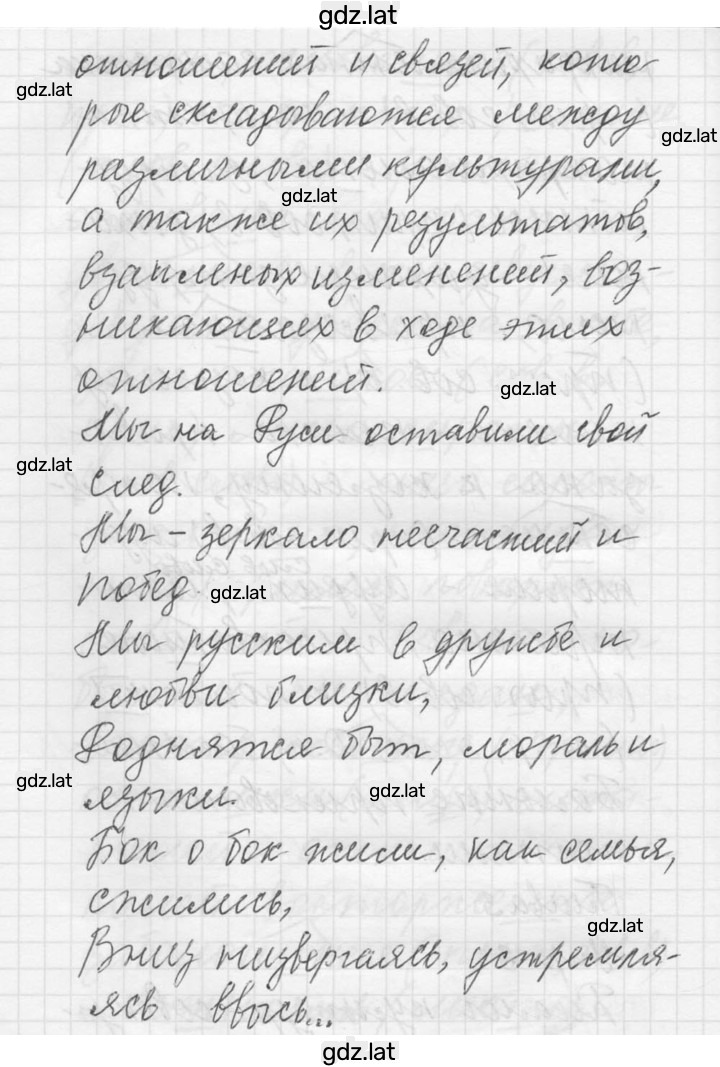 gdz.lat
отношений и связей, кото-
gdz.lat
рые складываются между
gdz.lat
различными культурами,
gdz.lat
а также их результатов,
взаимных изменений, воз-
никающих в ходе этих
отношений.
gdz.lat
Мы на Руси оставили свой
gdz.lat
след.
Мы - зеркало несчастий и
побед.
gdz.lat
Мы русским в дружбе и
любви близки,
Роднятся быт, мораль и
gdz.lat
языки.
gdz.lat
Бок о бок жили, как семья,
сжились,
gdz.lat
Вниз низвергаясь, устремля-
ясь ввысь...
gdz.lat